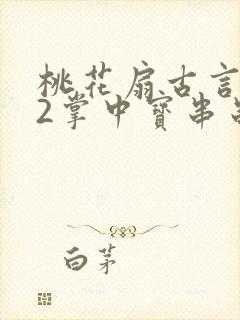 桃花扇古言
2掌中寳串
白茅